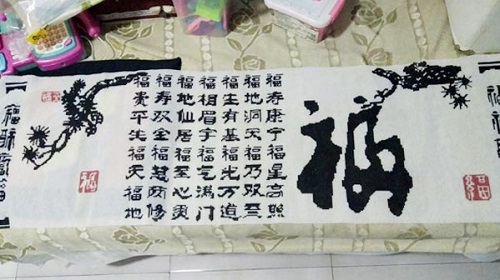 福
福寿康宁福星高照
福地洞天福乃双至
福生有基福光万道
福相眉宇福气满门
福地仙居福至心灵
福寿双全福慧两修
平生福天福地
福